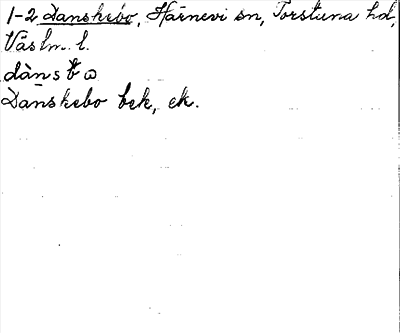 1-2 Danskebo, Härnevi sn, Torstuna hd,
Väslm. l.
dàns b ω
Danskebo bek, ek.